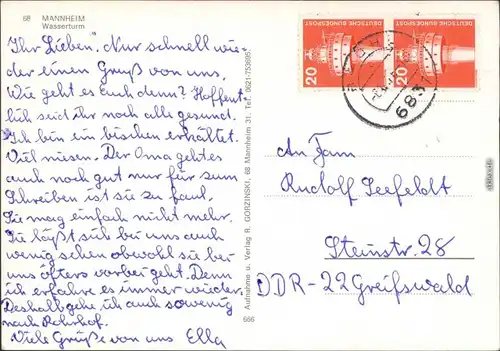 68 MANNHEIM
Wasserturm
Ihr Lieben. Nur schnell wie-
der einen Gruß von uns,
Wie geht es euch denn? Hoffent-
lich seid ihr noch alle gesund.
Ich bin ein bischen erkältet.
Viel niesen. Der Oma geht es
auch noch gut nur für zum
Schreiben ist sie zu faul,
Sie mag einfach nicht mehr.
Sie läßt sich bei uns auch
wenig sehen obwohl sie bei
uns öfters vorbei geht. Denn
ich erfahre es immer wieder.
Deshalb gehe ich auch sowenig
nach Rohrhof.
Viele Grüße von uns Ella
Aufnahme u. Verlag R. GORZINSKI, 68 Mannheim 31, Tel. 0621-753695
666
DEUTSCHE BUNDESPOST
20
DEUTSCHE BUNDESPOST
20
683
An Fam
Rudolf Seefeldt
Steinstr. 28
DDR-22 Greifswald